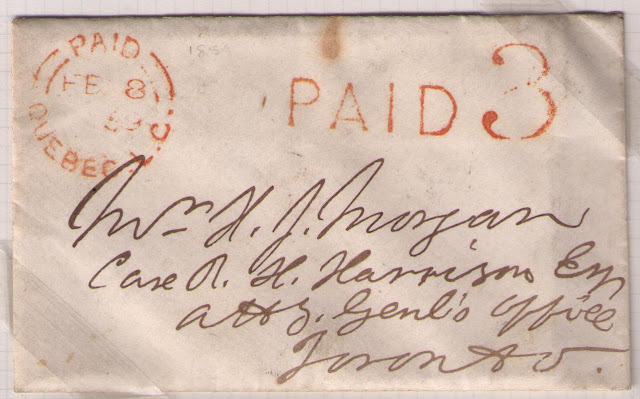 PAID
FE 8
59
QUEBEC L.C.
PAID 3
Mr H. J. Morgan
Care R. H. Harrison Esq
Atty. Genl's Office
Toronto.